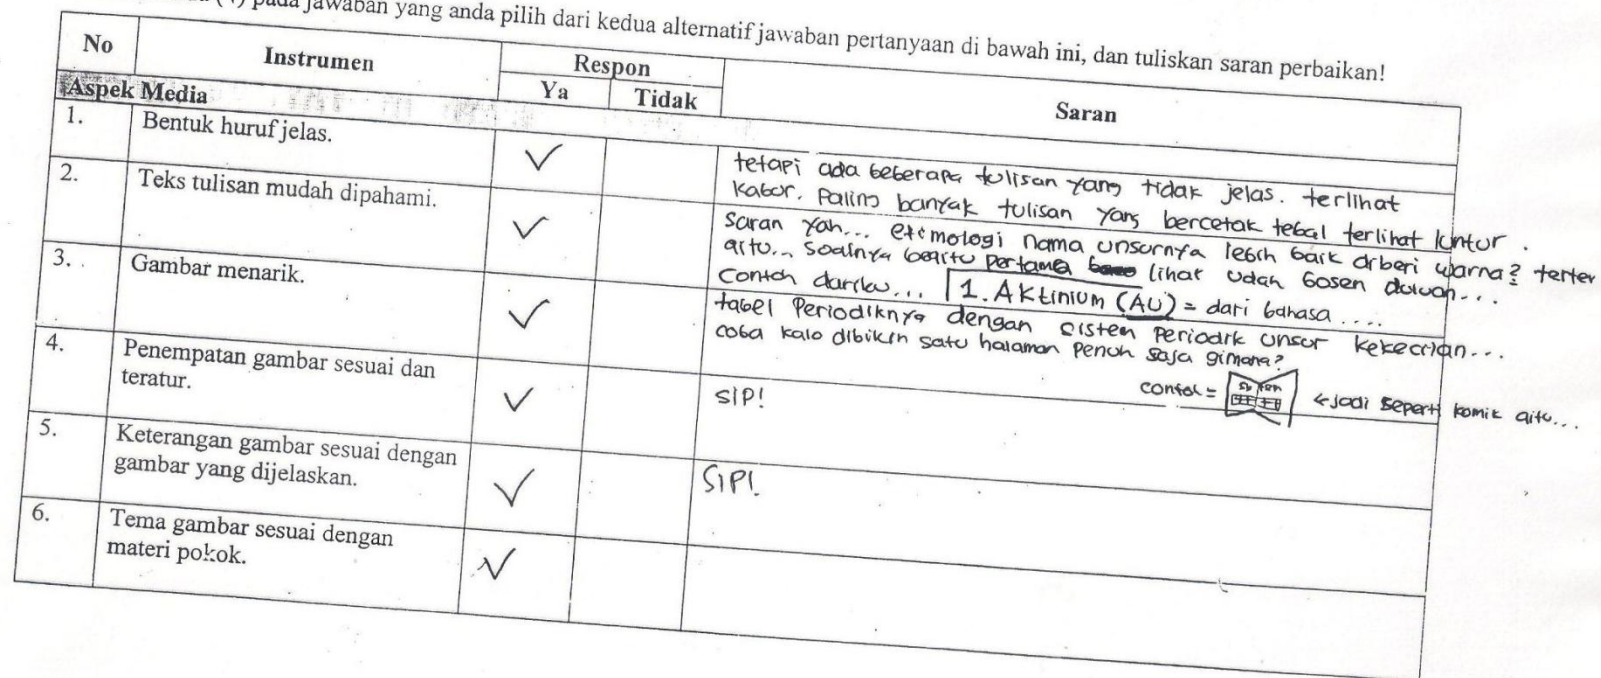 pada jawaban yang anda pilih dari kedua alternatif jawaban pertanyaan di bawah ini, dan tuliskan saran perbaikan!
No Instrumen Respon Saran
Ya Tidak
Aspek Media
1. Bentuk huruf jelas. ✓
tetapi ada beberapa tulisan yang tidak jelas. terlihat
kabur. Paling banyak tulisan yang bercetak tebal terlihat luntur.
2. Teks tulisan mudah dipahami. ✓
saran yah... etimologi nama unsurnya lebih baik diberi warna?
gitu... soalnya begitu pertama lihat udah bosen duluan...
Contoh dariku... 1. Aktinium (AU) = dari bahasa ....
3. Gambar menarik. ✓
tabel Periodiknya dengan sistem periodik unsur kekecilan...
coba kalo dibikin satu halaman penuh saja gimana?
contoh = ← jadi seperti komik gitu...
4. Penempatan gambar sesuai dan
teratur. ✓ SIP!
5. Keterangan gambar sesuai dengan
gambar yang dijelaskan. ✓ SIP!
6. Tema gambar sesuai dengan
materi pokok. ✓